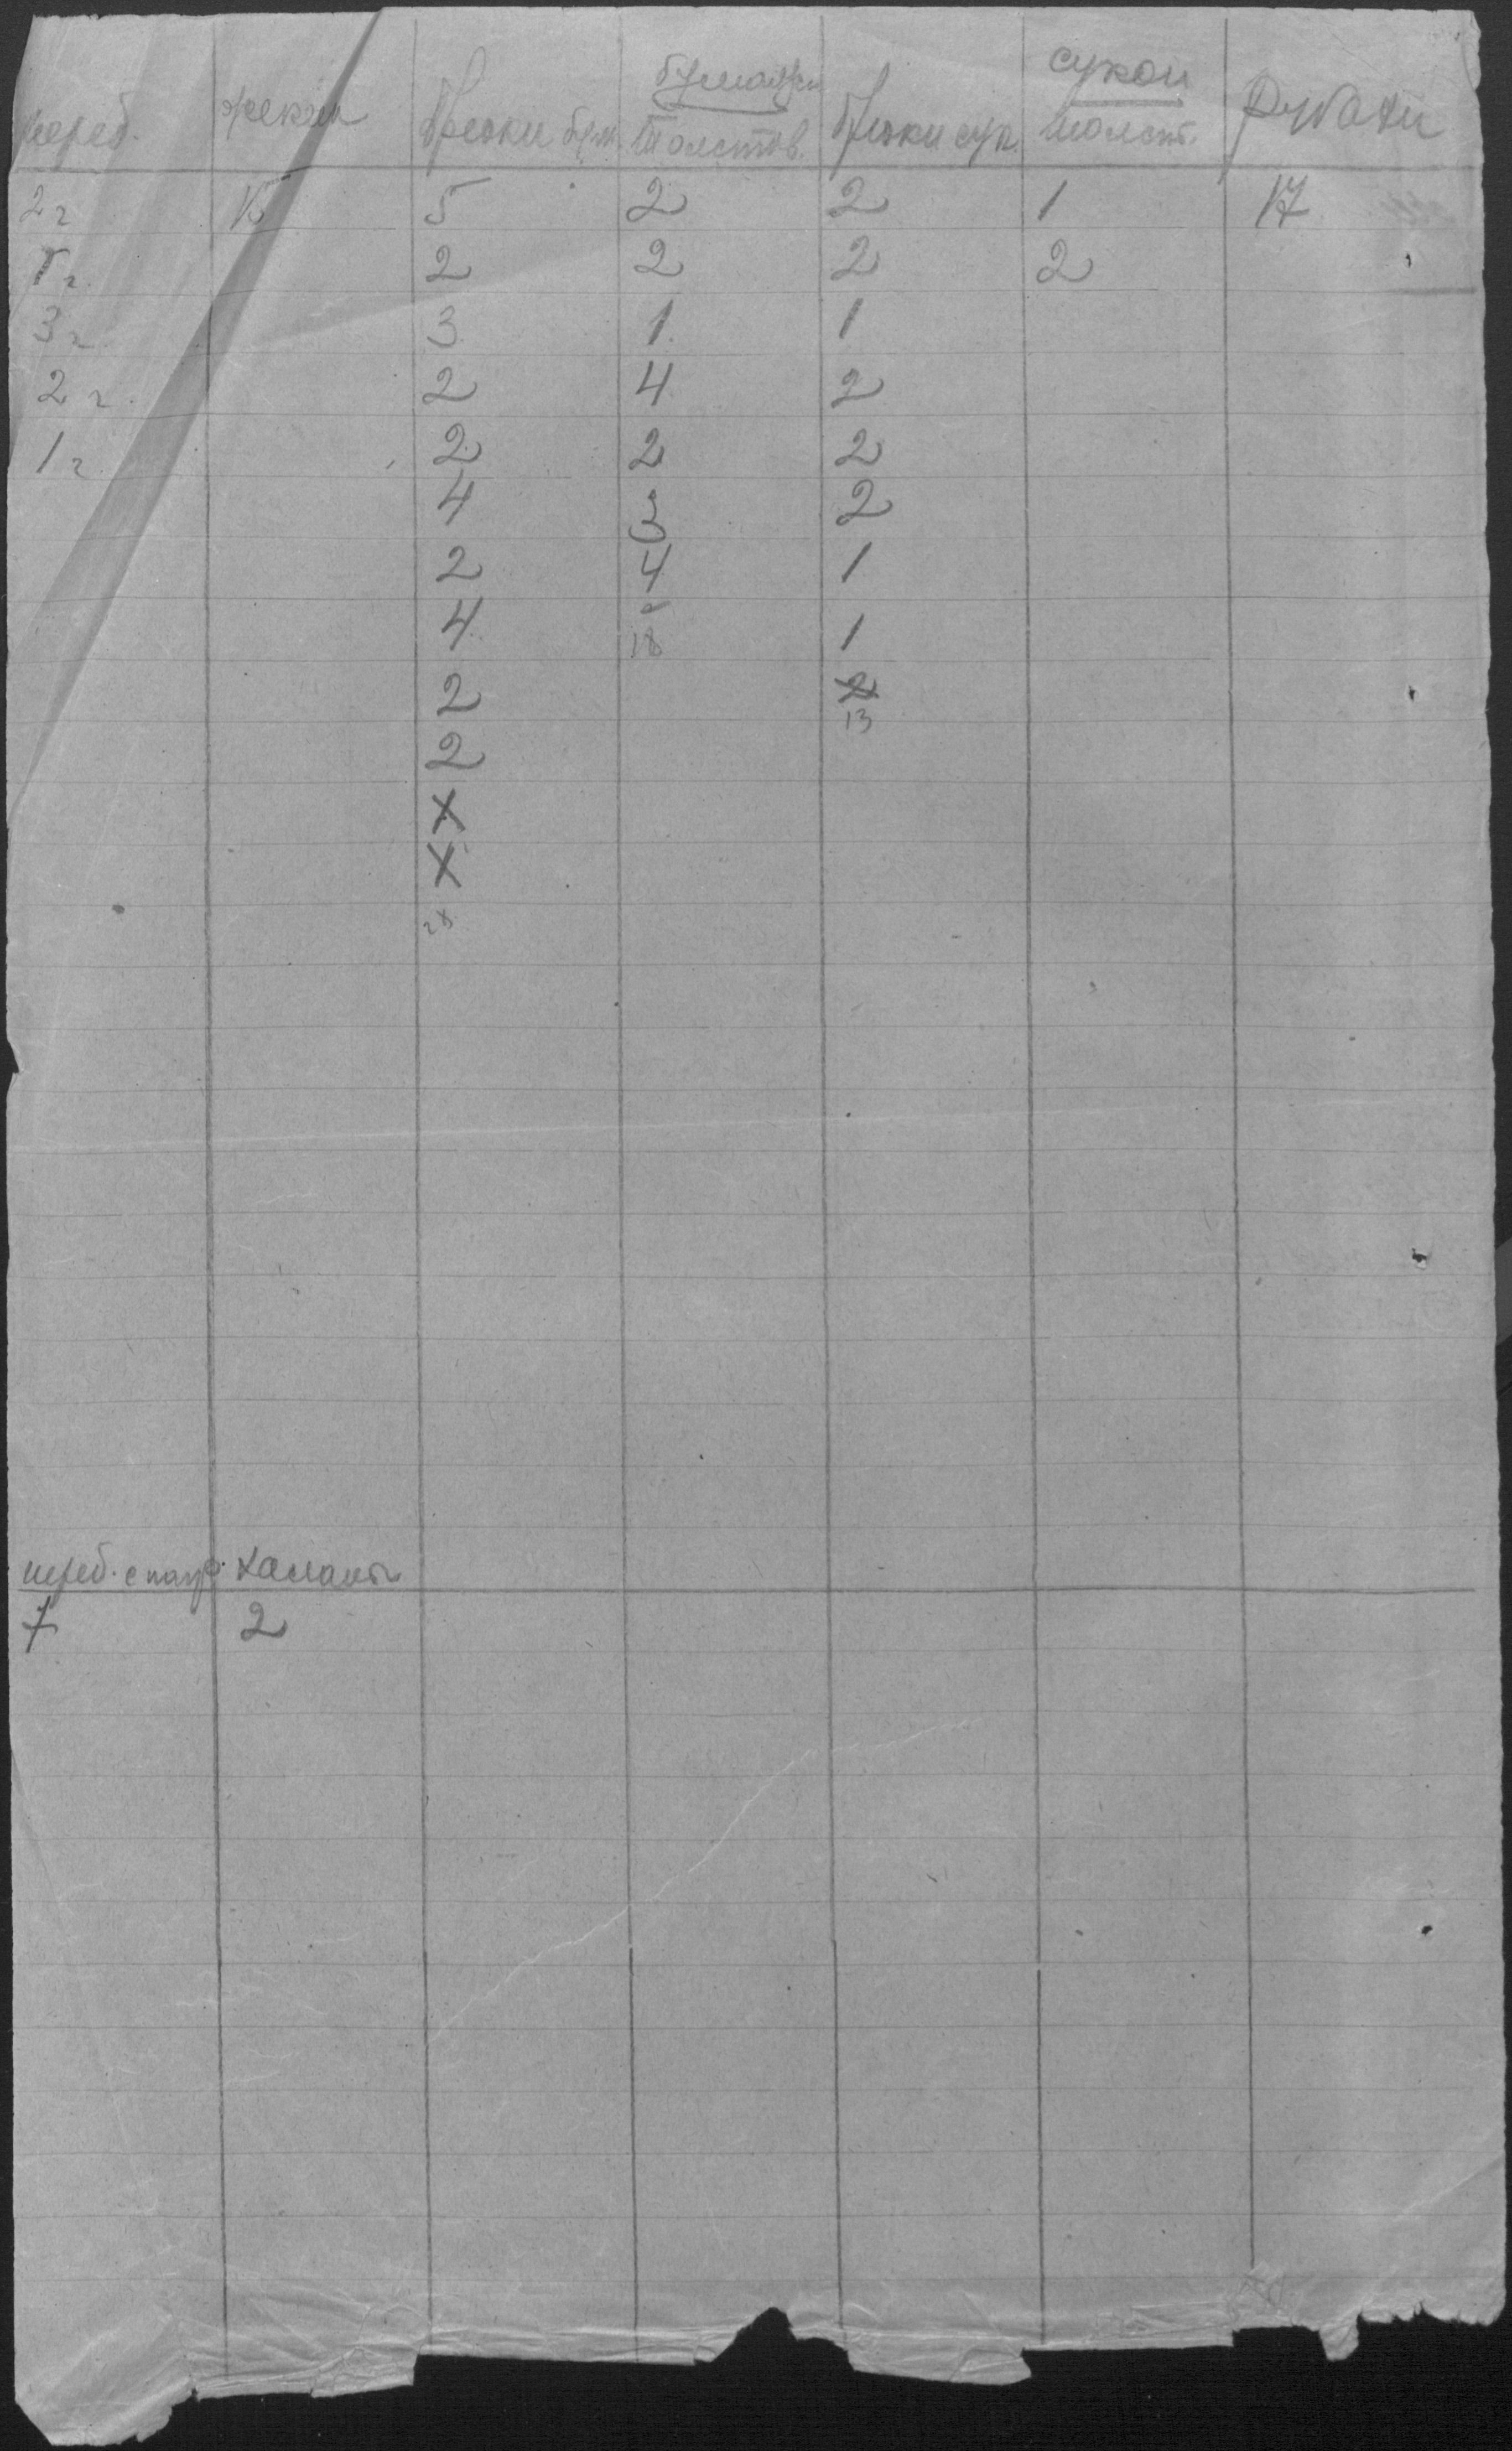 бумажн сукон
переб. Брюки бум. Толстов. Брюки сук. толст. Рубахи
2 г 15 5 2 2 1 17
5 г. 2 2 2 2
3 г. 3 1 1
2 г. 2 4 2
1 г. 2 2 2
4 3 2
2 4 1
4 18 1
2 2
13
2
X
X
28
переб. халаты
7 2